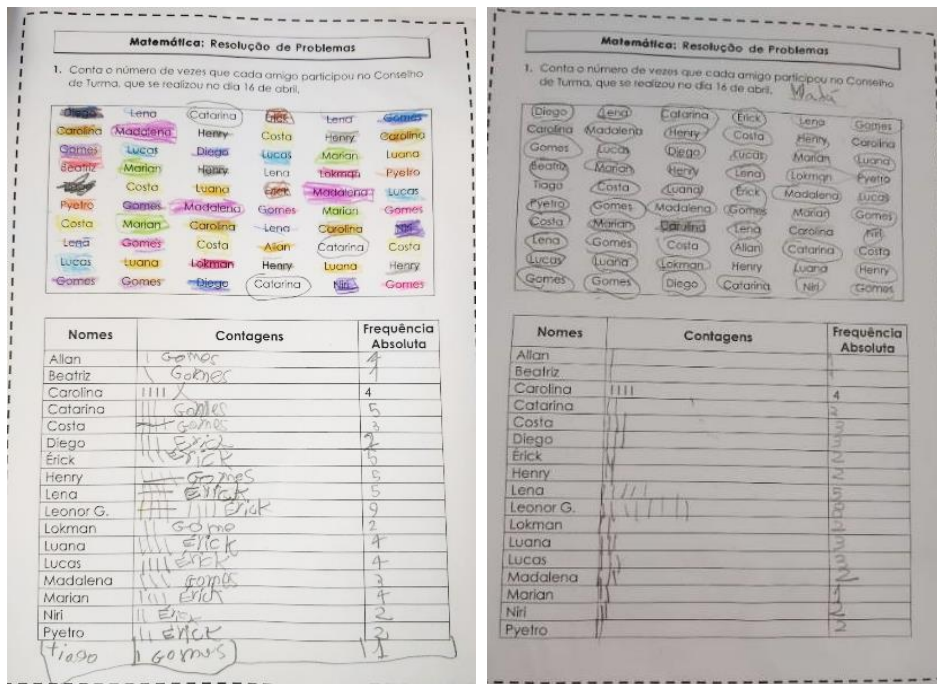 Matemática: Resolução de Problemas
1. Conta o número de vezes que cada amigo participou no Conselho
de Turma, que se realizou no dia 16 de abril.
Diego Lena Catarina Érick Lena Gomes
Carolina Madalena Henry Costa Henry Carolina
Gomes Lucas Diego Lucas Marian Luana
Beatriz Marian Henry Lena Lokman Pyetro
Costa Luana Érick Madalena Lucas
Pyetro Gomes Madalena Gomes Marian Gomes
Costa Marian Carolina Lena Carolina Niri
Lena Gomes Costa Allan Catarina Costa
Lucas Luana Lokman Henry Luana Henry
Gomes Gomes Diego Catarina Niri Gomes
Nomes Contagens Frequência Absoluta
Allan Gomes 4
Beatriz Gomes 1
Carolina 4
Catarina Gomes 5
Costa Gomes 3
Diego Erick 2
Érick Erick 5
Henry Gomes 5
Lena Erick 5
Leonor G. Erick 9
Lokman Gome 2
Luana Erick 4
Lucas Erick 4
Madalena Gomes 3
Marian Erick 4
Niri 2
Pyetro Erick 2
tiago Gomes 1
Matemática: Resolução de Problemas
1. Conta o número de vezes que cada amigo participou no Conselho
de Turma, que se realizou no dia 16 de abril.
Madá
Diego Lena Catarina Érick Lena Gomes
Carolina Madalena Henry Costa Henry Carolina
Gomes Lucas Diego Lucas Marian Luana
Beatriz Marian Henry Lena Lokman Pyetro
Tiago Costa Luana Érick Madalena Lucas
Pyetro Gomes Madalena Gomes Marian Gomes
Costa Marian Carolina Lena Carolina Niri
Lena Gomes Costa Allan Catarina Costa
Lucas Luana Lokman Henry Luana Henry
Gomes Gomes Diego Catarina Niri Gomes
Nomes Contagens Frequência Absoluta
Allan
Beatriz 1
Carolina 4
Catarina 2
Costa 3
Diego 3
Érick 2
Henry 2
Lena 5
Leonor G.
Lokman 2
Luana 3
Lucas 3
Madalena 2
Marian 1
Niri 2
Pyetro 2